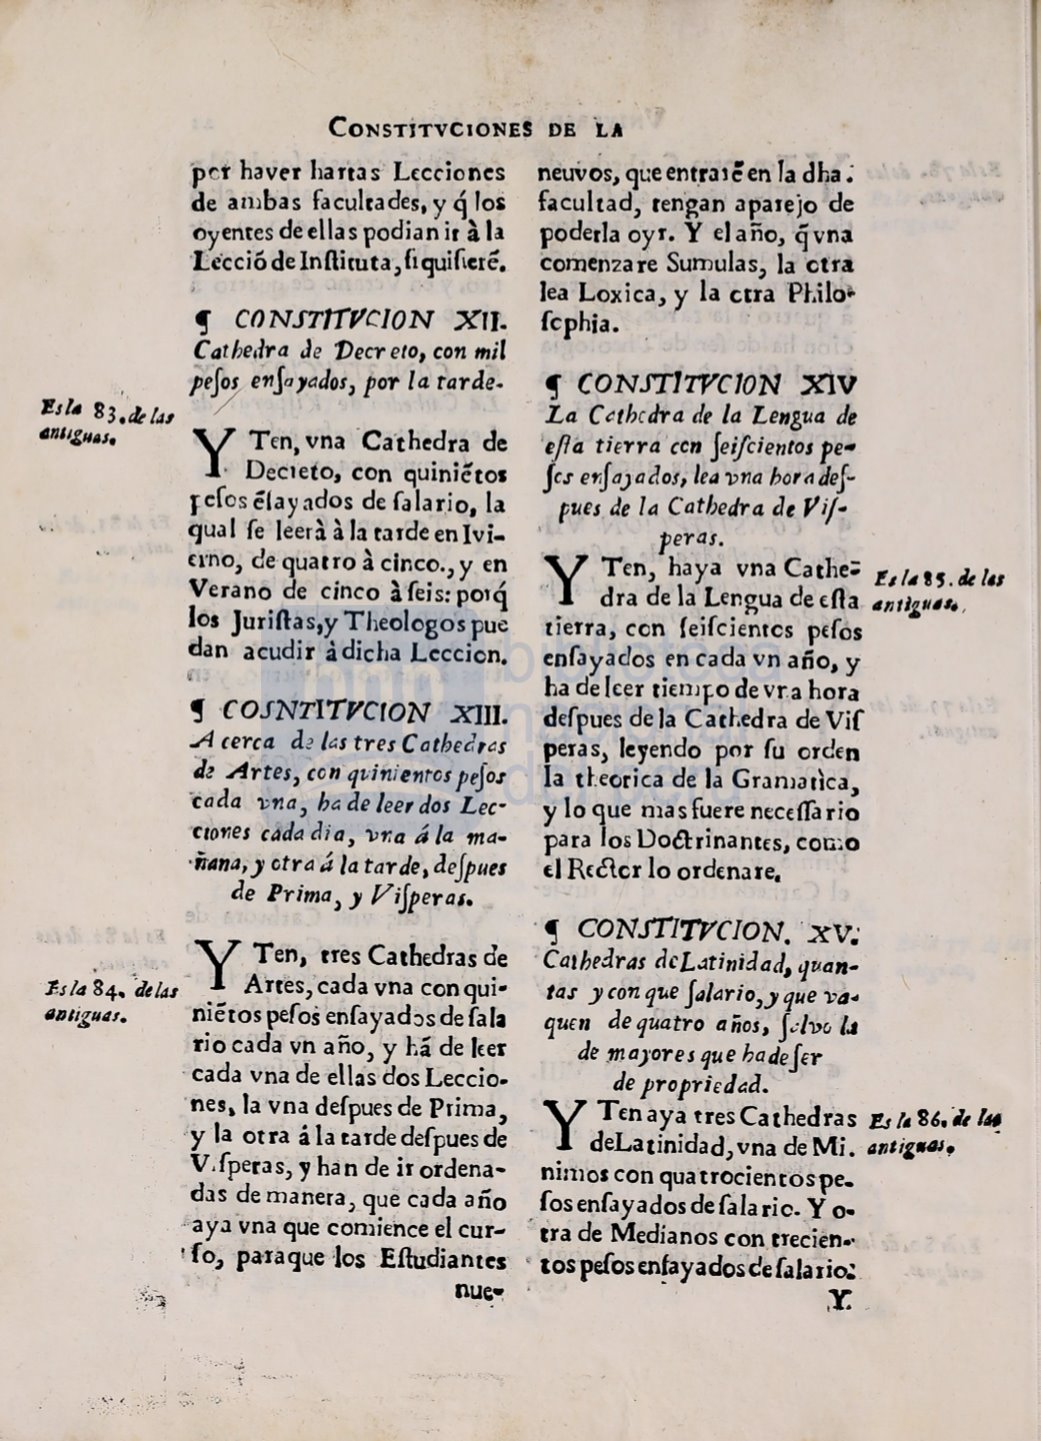 CONSTITVCIONES DE LA
por haver hartas Lecciones
de ambas facultades, y q́ los
oyentes de ellas podian ir à la
Lecció de Instituta, si quisierẽ.
¶ CONSTITVCION XII.
Cathedra de Decreto, con mil
pesos ensayados, por la tarde.
Es la 83. de las
antiguas.
YTen, vna Cathedra de
Decreto, con quiniẽtos
pesos ẽsayados de salario, la
qual se leerà à la tarde en Ivi-
erno, de quatro à cinco., y en
Verano de cinco à seis: porq́
los Juristas, y Theologos pue
dan acudir à dicha Leccion.
¶ COSNTITVCION XIII.
A cerca de las tres Cathedras
de Artes, con quinientos pesos
cada vna, ha de leer dos Lec-
ciones cada dia, vna á la ma-
ñana, y otra á la tarde, despues
de Prima, y Visperas.
Es la 84. de las
antiguas.
YTen, tres Cathedras de
Artes, cada vna con qui-
niẽtos pesos ensayados de sala
rio cada vn año, y há de leer
cada vna de ellas dos Leccio-
nes, la vna despues de Prima,
y la otra á la tarde despues de
Visperas, y han de ir ordena-
das de manera, que cada año
aya vna que comience el cur-
so, paraque los Estudiantes
nue-
neuvos, que entrarẽ en la dha.
facultad, tengan aparejo de
poderla oyr. Y el año, q̃ vna
comenzare Sumulas, la otra
lea Loxica, y la otra Philo-
sophia.
¶ CONSTITVCION XIV
La Cathedra de la Lengua de
esta tierra con seiscientos pe-
sos ensayados, lea vna hora des-
pues de la Cathedra de Vis-
peras.
YTen, haya vna Cathe-
dra de la Lengua de esta
tierra, con seiscientos pesos
ensayados en cada vn año, y
ha de leer tiempo de vna hora
despues de la Cathedra de Vis
peras, leyendo por su orden
la theorica de la Gramatica,
y lo que mas fuere necessario
para los Doctrinantes, como
el Rector lo ordenare.
Es la 85. de las
antiguas.
¶ CONSTITVCION. XV.
Cathedras de Latinidad, quan-
tas y con que salario, y que va-
quen de quatro años, salvo la
de mayores que ha de ser
de propriedad.
YTen aya tres Cathedras
de Latinidad, vna de Mi.
nimos con quatrocientos pe-
sos ensayados de salario. Y o-
tra de Medianos con trecien-
tos pesos ensayados de salario:
Es la 86. de las
antiguas.
Y.
biblioteca
nacional